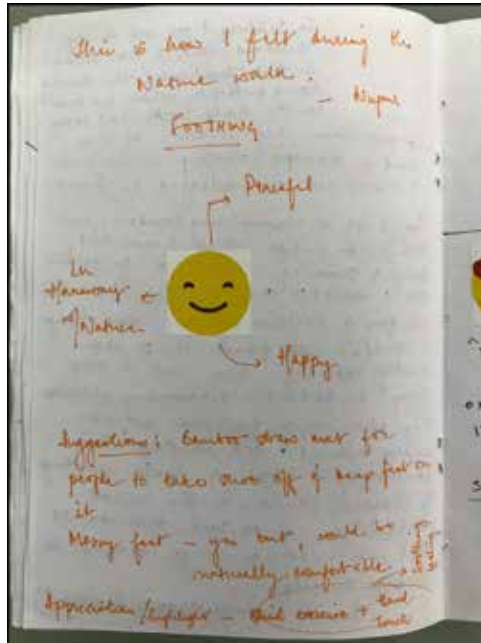 This is how I felt during the
Nature walk.
- Nupur
FOOTHING
Peaceful
In
Harmony
w/Nature
Happy
Suggestions: Bamboo straw mat for
people to take shoe off & keep feet on
it
Messy feet - yes but, would be
naturally comfortable
feeling
Appreciation/highlight - +
touch